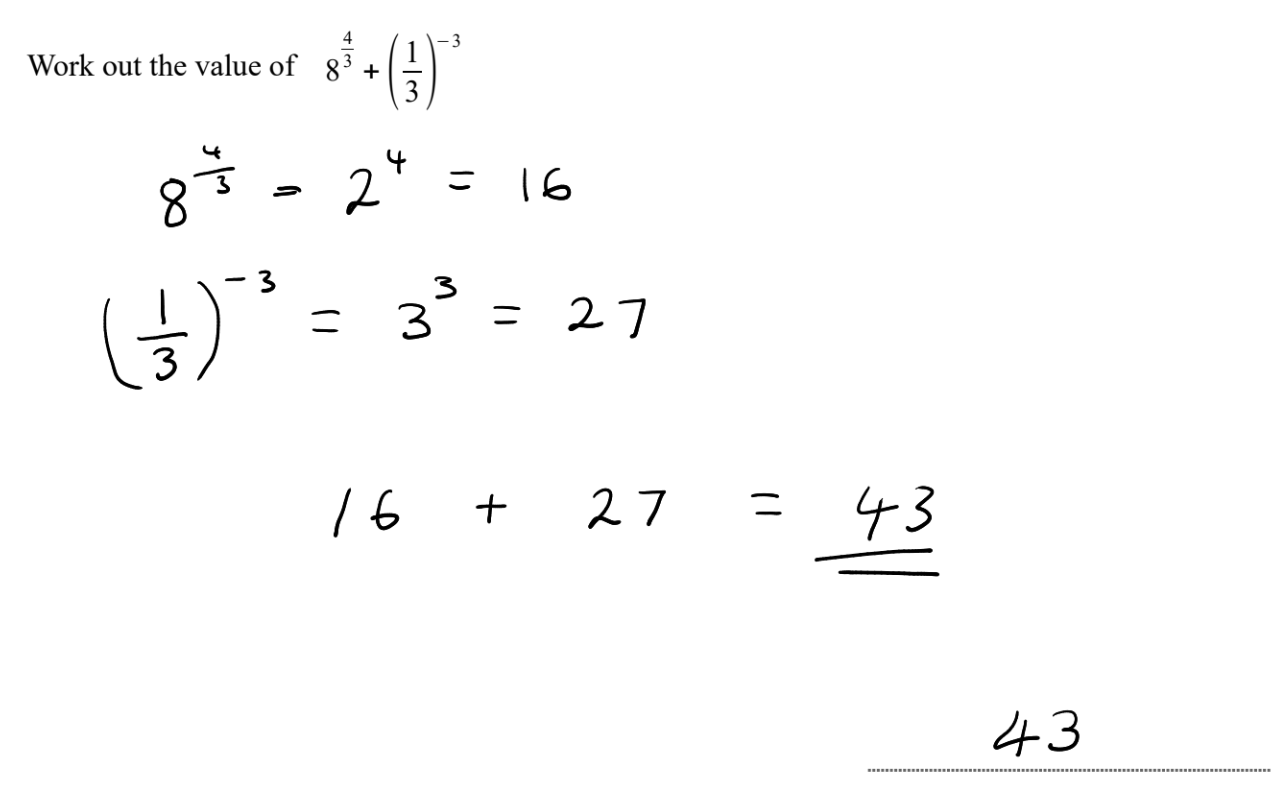 Work out the value of 8^(4/3) + (1/3)^(-3)
8^(4/3) = 2^4 = 16
(1/3)^(-3) = 3^3 = 27
16 + 27 = 43
43